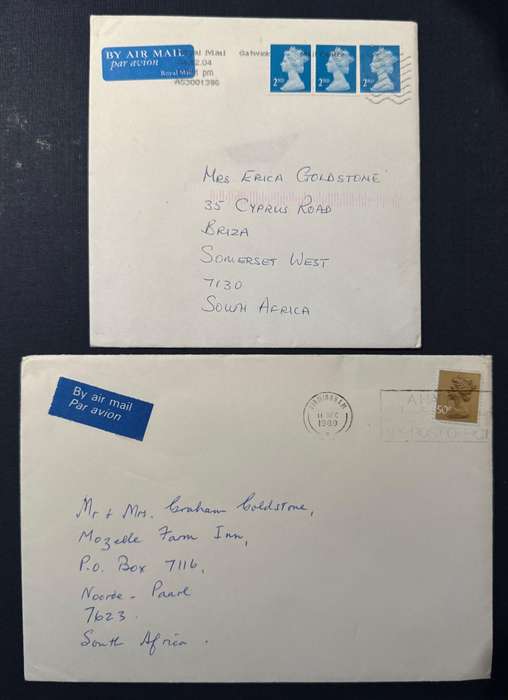 BY AIR MAIL
par avion
Royal Mail
Royal Mail
Gatwick
.12.04
pm
A53001396
2ND
2ND
2ND
MRS ERICA GOLDSTONE
35 CYPRUS ROAD
BRIZA
SOMERSET WEST
7130
SOUTH AFRICA
By air mail
Par avion
BIRMINGHAM
11 DEC
50P
Mr & Mrs. Graham Goldstone,
Mozelle Farm Inn,
P.O. Box 7116,
Noorde - Paarl
7623.
South Africa.